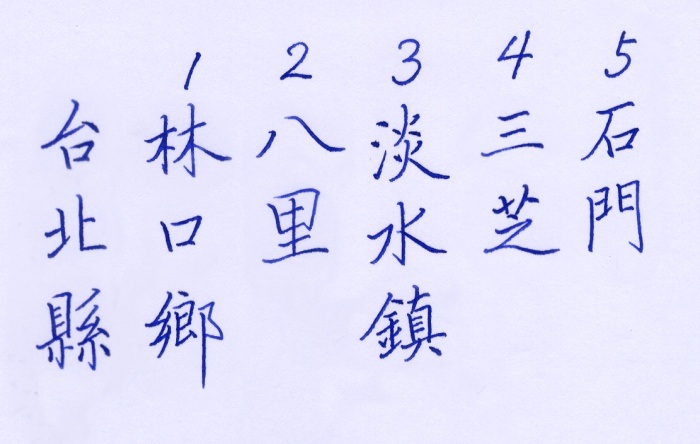 台北縣
1 林口鄉
2 八里
3 淡水鎮
4 三芝
5 石門